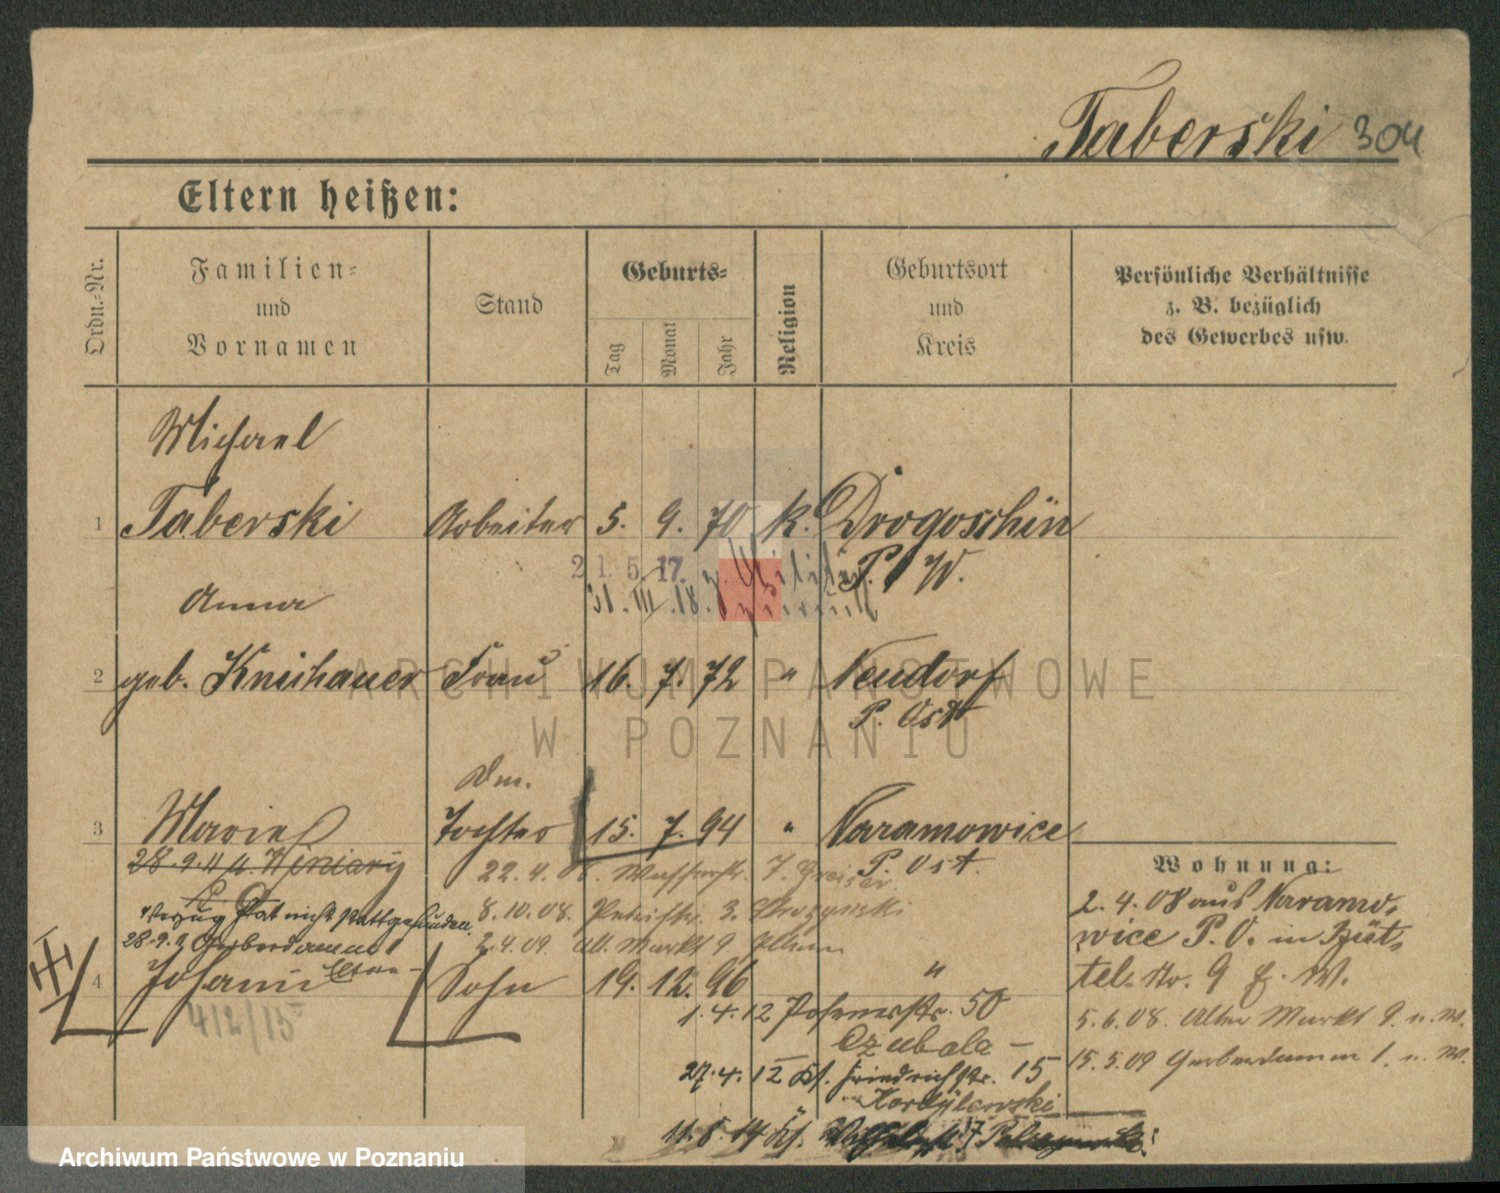 Taberski 304
Eltern heißen:
Ordn.-Nr.
Familien-
und
Vornamen
Stand
Geburts-
Tag
Monat
Jahr
Religion
Geburtsort
und
Kreis
Persönliche Verhältnisse
z. B. bezüglich
des Gewerbes usw.
Michael
1 Taberski Arbeiter 5. 9. 70 k. Drogoschin
P. W.
21.5.17. z. Militär
31.III.18.
Anna
2 geb. Frau 16. 7. 72 " Neudorf
P. Ost
Dm.
3 Marie Tochter 15. 7. 94 " Naramowice
P. Ost.
28.9.11
22.4.08. 7.
Verzug hat nicht stattgefunden.
8.10.08. 3.
28.9.11 Gerberdamm
2.4.09. All. Markt 9.
4 Johann Sohn 19. 12. 96 "
412/15
1.4.12 Posenerstr. 50
Czubala
27.4.12 Kl. Friedrichstr. 15
11.8.14
Wohnung:
2.4.08 aus Naramo-
wice P. O. in Büt-
tel-Str. 9 b. W.
5.6.08. Alter Markt 9. u. W.
15.5.09 Gerberdamm 1. u. W.
ARCHIWUM PAŃSTWOWE
W POZNANIU
Archiwum Państwowe w Poznaniu